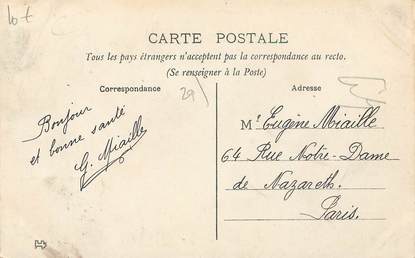 lot
CARTE POSTALE
Tous les pays étrangers n'acceptent pas la correspondance au recto.
(Se renseigner à la Poste)
Correspondance
29
Bonjour
et bonne santé
G. Miaille
Adresse
Mr Eugène Miaille
64 Rue Notre-Dame
de Nazareth.
Paris.